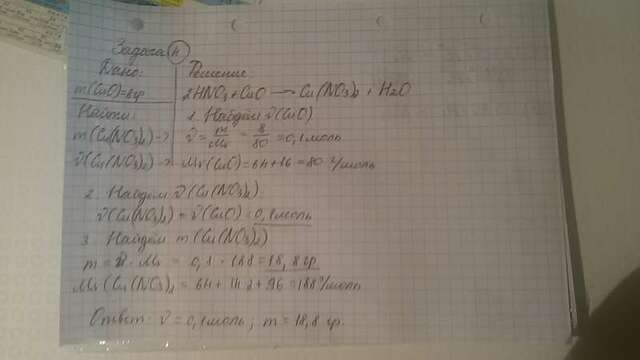 Задача 4
Дано:
m(CuO)=8гр
Найти:
m(Cu(NO3)2)-?
ν(Cu(NO3)2)-?
Решение
2HNO3+CuO → Cu(NO3)2 + H2O
1. Найдём ν(CuO)
ν = m/Mr = 8/80 = 0,1моль
Mr(CuO)=64+16=80 г/моль
2. Найдём ν(Cu(NO3)2)
ν(Cu(NO3)2) = ν(CuO) = 0,1 моль
3. Найдём m(Cu(NO3)2)
m = ν · Mr = 0,1 · 188 = 18,8 гр
Mr(Cu(NO3)2 = 64+14·2+96 = 188 г/моль
Ответ: ν = 0,1моль; m = 18,8 гр.